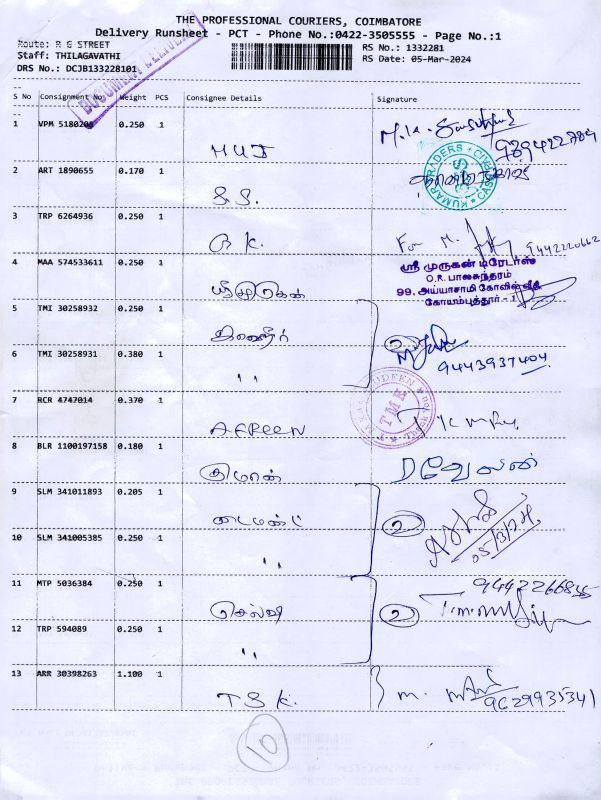 THE PROFESSIONAL COURIERS, COIMBATORE
Delivery Runsheet - PCT - Phone No.:0422-3505555 - Page No.:1
Route: R G STREET
Staff: THILAGAVATHI
DRS No.: DCJB133228101
RS No.: 1332281
RS Date: 05-Mar-2024
DOCUMENT DELIVERED
S No Consignment No. Weight PCS Consignee Details Signature
1 VPM 5180208 0.250 1
9894422784
2 ART 1890655 0.170 1
S.S.
KUMARI TRADERS
3 TRP 6264936 0.250 1
R K.
For M.
9442220662
4 MAA 574533611 0.250 1
ஸ்ரீ முருகன்
ஸ்ரீ முருகன் டிரேடர்ஸ்
O.R. பாலசுந்தரம்
99, அய்யாசாமி கோவில் வீதி
கோயம்புத்தூர் - 1
5 TMI 30258932 0.250 1
2
6 TMI 30258931 0.380 1
"
9443937404
7 RCR 4747014 0.370 1
AFREEN
TMK
8 BLR 1100197158 0.180 1
குமரன்
D வேலன்
9 SLM 341011893 0.205 1
டைமண்ட்
2
10 SLM 341005385 0.250 1
"
05/3/24
11 MTP 5036384 0.250 1
செல்வி
9442266855
2
12 TRP 594089 0.250 1
"
13 ARR 30398263 1.100 1
T S K.
M.
9629935341
10